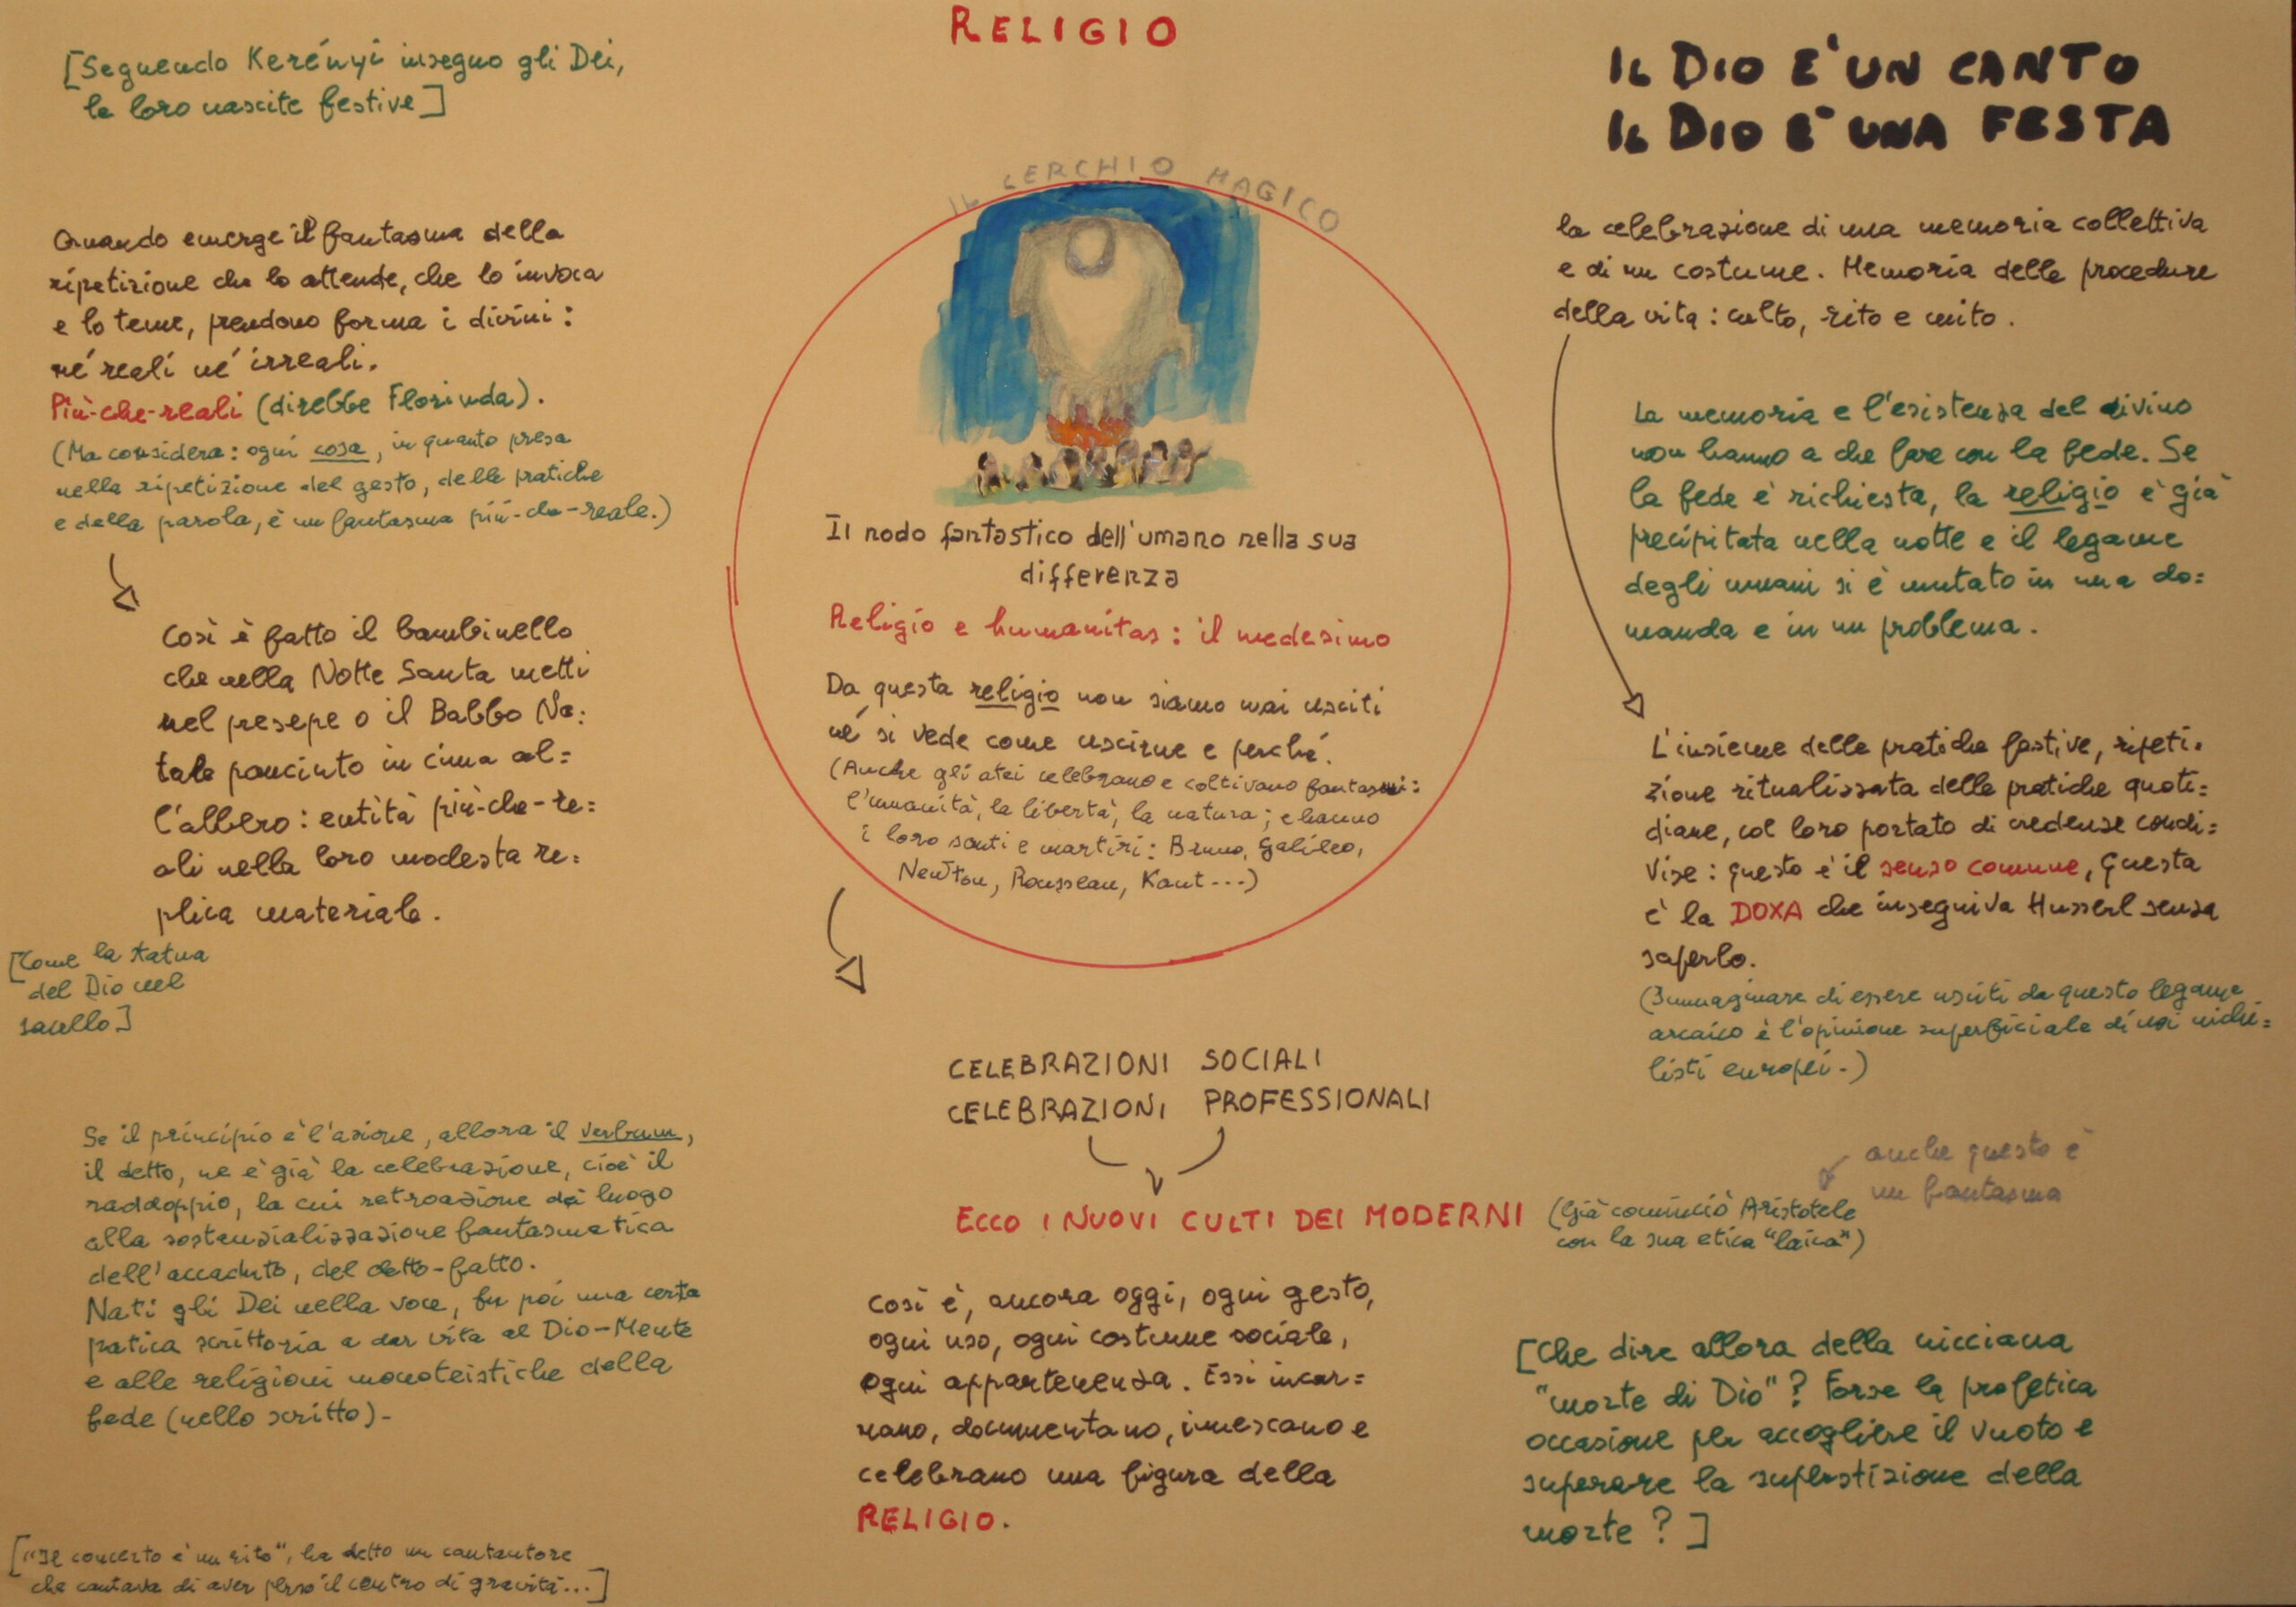 RELIGIO
[Seguendo Kerényi insegno gli Dei,
le loro nascite festive]
Quando emerge il fantasma della
ripetizione che lo attende, che lo invoca
e lo teme, prendono forma i divini:
né reali né irreali.
Più-che-reali (direbbe Florinda).
(Ma considera: ogni cosa, in quanto presa
nella ripetizione del gesto, delle pratiche
e della parola, è un fantasma più-che-reale.)
Così è fatto il bambinello
che nella Notte Santa metti
nel presepe o il Babbo Na=
tale panciuto in cima al=
l'albero: entità più-che-re=
ali nella loro modesta re=
plica materiale.
[Come la statua
del Dio nel
sacello]
Se il principio è l'azione, allora il verbum,
il detto, ne è già la celebrazione, cioè il
raddoppio, la cui retroazione dà luogo
alla sostanzializzazione fantasmatica
dell'accaduto, del detto-fatto.
Nati gli Dei nella voce, fu poi una certa
pratica scrittoria a dar vita al Dio-Mente
e alle religioni monoteistiche della
fede (nello scritto).
["Il concerto è un rito", ha detto un cantautore
che cantava di aver perso il centro di gravità...]
IL CERCHIO MAGICO
Il nodo fantastico dell'umano nella sua
differenza
Religio e humanitas: il medesimo
Da questa religio non siamo mai usciti
né si vede come uscirne e perché.
(Anche gli atei celebrano e coltivano fantasmi:
l'umanità, la libertà, la natura; e hanno
i loro santi e martiri: Bruno, Galileo,
Newton, Rousseau, Kant...)
CELEBRAZIONI SOCIALI
CELEBRAZIONI PROFESSIONALI
ECCO I NUOVI CULTI DEI MODERNI
(Già cominciò Aristotele
con la sua etica "laica")
anche questo è
un fantasma
Così è, ancora oggi, ogni gesto,
ogni uso, ogni costume sociale,
ogni appartenenza. Essi incar=
nano, documentano, innescano e
celebrano una figura della
RELIGIO.
IL DIO E' UN CANTO
IL DIO E' UNA FESTA
la celebrazione di una memoria collettiva
e di un costume. Memoria delle procedure
della vita: culto, rito e mito.
La memoria e l'esistenza del divino
non hanno a che fare con la fede. Se
la fede è richiesta, la religio è già
precipitata nella notte e il legame
degli umani si è mutato in una do=
manda e in un problema.
L'insieme delle pratiche festive, ripeti=
zione ritualizzata delle pratiche quoti=
diane, col loro portato di credenze condi=
vise: questo è il senso comune, questa
è la DOXA che inseguiva Husserl senza
saperlo.
(Immaginare di essere usciti da questo legame
arcaico è l'opinione superficiale di noi nichi=
listi europei.)
[Che dire allora della nicciana
"morte di Dio"? Forse la profetica
occasione per accogliere il vuoto e
superare la superstizione della
morte?]